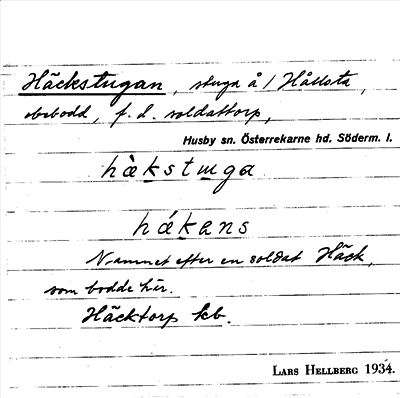 Häckstugan, stuga å / Hållsta,
obebodd, f. d. soldattorp,
Husby sn. Österrekarne hd. Söderm. l.
hä̀kstuga
hákans
Namnet efter en soldat Häck,
som bodde här.
Häcktorp kb.
LARS HELLBERG 1934.